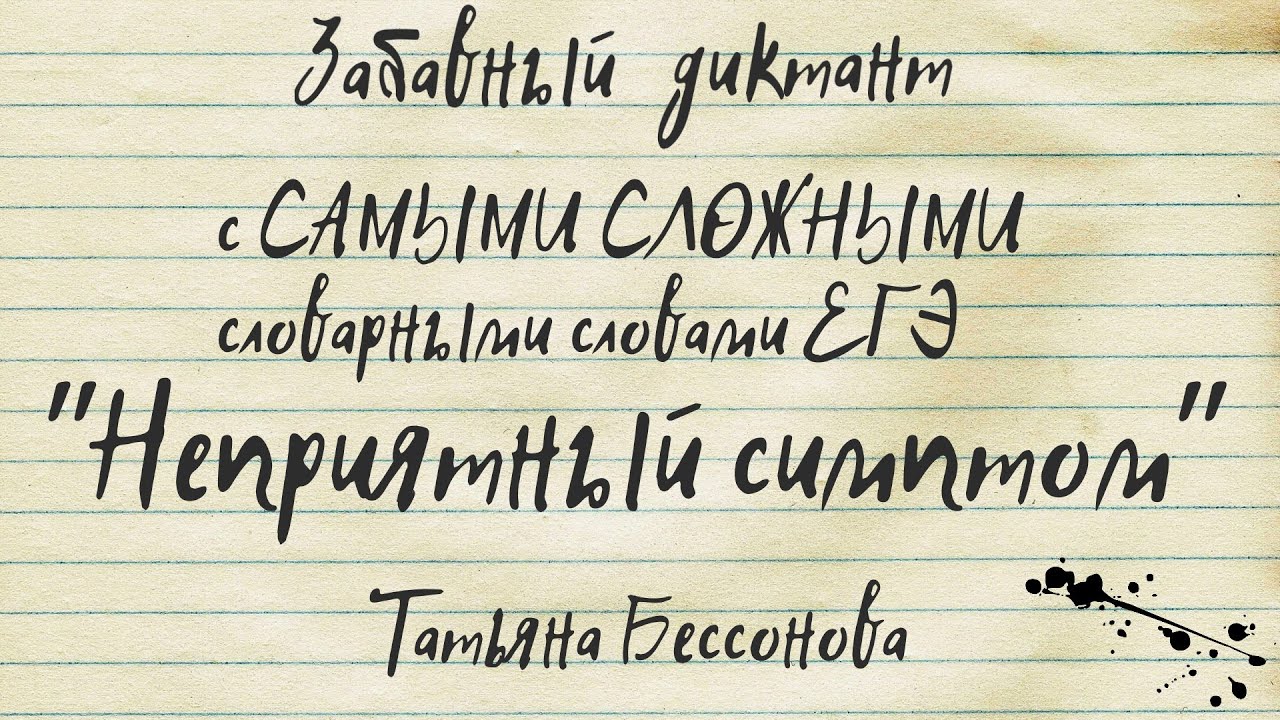 Забавный диктант
с САМЫМИ СЛОЖНЫМИ
словарными словами ЕГЭ
"Неприятный симптом"
Татьяна Бессонова